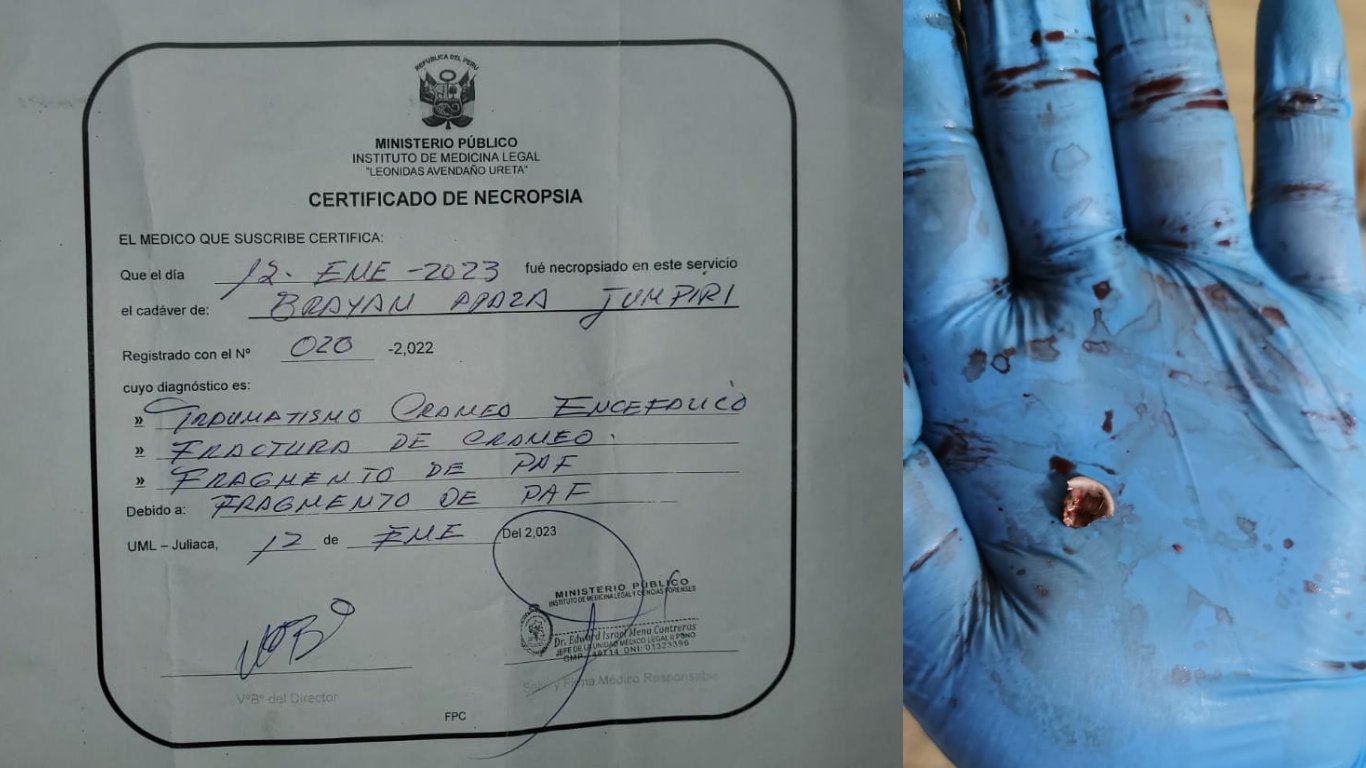 REPUBLICA DEL PERU
MINISTERIO PÚBLICO
INSTITUTO DE MEDICINA LEGAL
"LEONIDAS AVENDAÑO URETA"
CERTIFICADO DE NECROPSIA
EL MEDICO QUE SUSCRIBE CERTIFICA:
Que el día 12. ENE -2023 fué necropsiado en este servicio
el cadáver de: BRAYAN APAZA JUMPIRI
Registrado con el Nº 020 -2,022
cuyo diagnóstico es:
» TRAUMATISMO CRANEO ENCEFALICO
» FRACTURA DE CRANEO.
» FRAGMENTO DE PAF
Debido a: FRAGMENTO DE PAF
UML – Juliaca, 12 de ENE Del 2,023
MINISTERIO PÚBLICO
INSTITUTO DE MEDICINA LEGAL Y CIENCIAS FORENSES
VºBº
Dr. Edward Israel Mena Contreras
JEFE DE LA UNIDAD MÉDICO LEGAL II PUNO
DNI: 01323396
VºBº del Director
Sello y Firma Médico Responsable
FPC